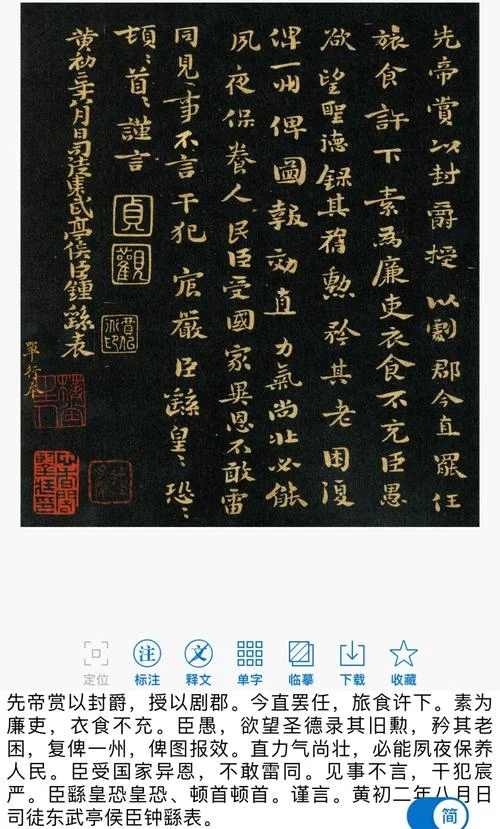 先帝賞以封爵授以劇郡今直罷任
旅食許下素為廉吏衣食不充臣愚
欲望聖德録其舊勲矜其老困復
俾一州俾圖報効直力氣尚壮必能
夙夜保養人民臣受國家異恩不敢雷
同見事不言干犯宸嚴臣繇皇〻恐〻
頓〻首〻謹言
黄初二年八月日司徒東武亭侯臣鍾繇表
貞
觀
單行本
定位
标注
释文
单字
临摹
下载
收藏
注
文
先帝赏以封爵，授以剧郡。今直罢任，旅食许下。素为
廉吏，衣食不充。臣愚，欲望圣德录其旧勲，矜其老
困，复俾一州，俾图报效。直力气尚壮，必能夙夜保养
人民。臣受国家异恩，不敢雷同。见事不言，干犯宸
严。臣繇皇恐皇恐、顿首顿首。谨言。黄初二年八月日
司徒东武亭侯臣钟繇表。
简